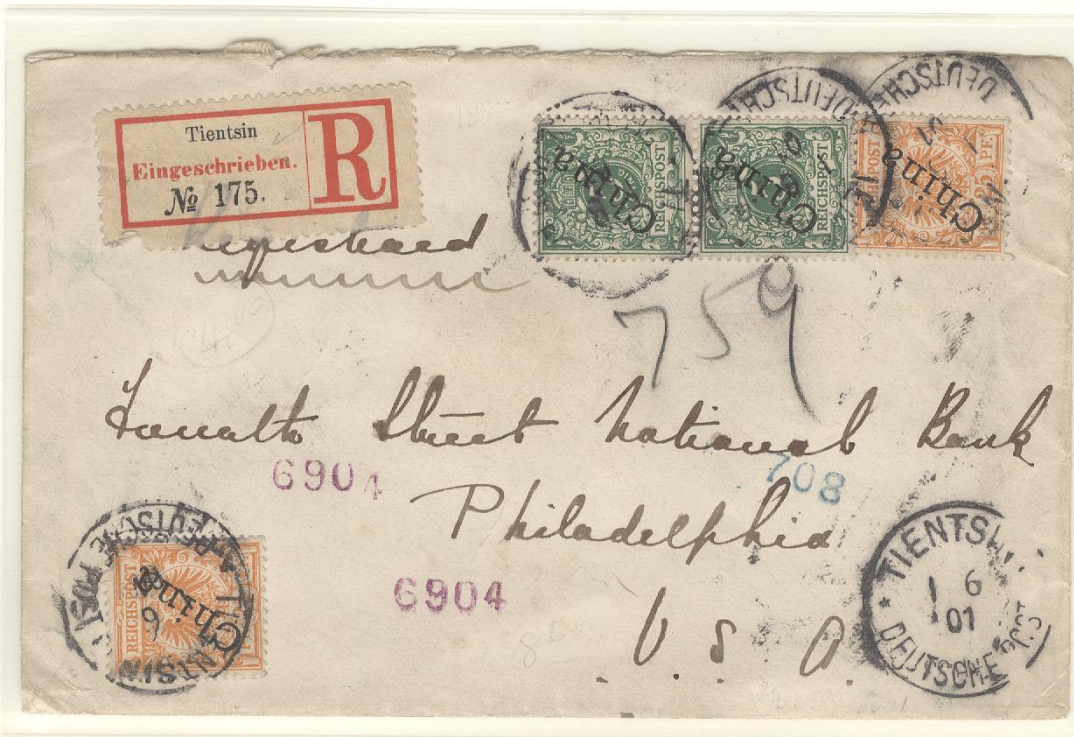 Tientsin
Eingeschrieben.
R
№ 175.
Registered
REICHSPOST
China
REICHSPOST
China
REICHSPOST
China
25 PF.
DEUTSCHE
DEUTSCHE
759
Street National Bank
6904
708
Philadelphia
6904
U. S. A.
TIENTSIN
DEUTSCHE POST
6
REICHSPOST
China
TIENTSIN
6
01
DEUTSCHE POST